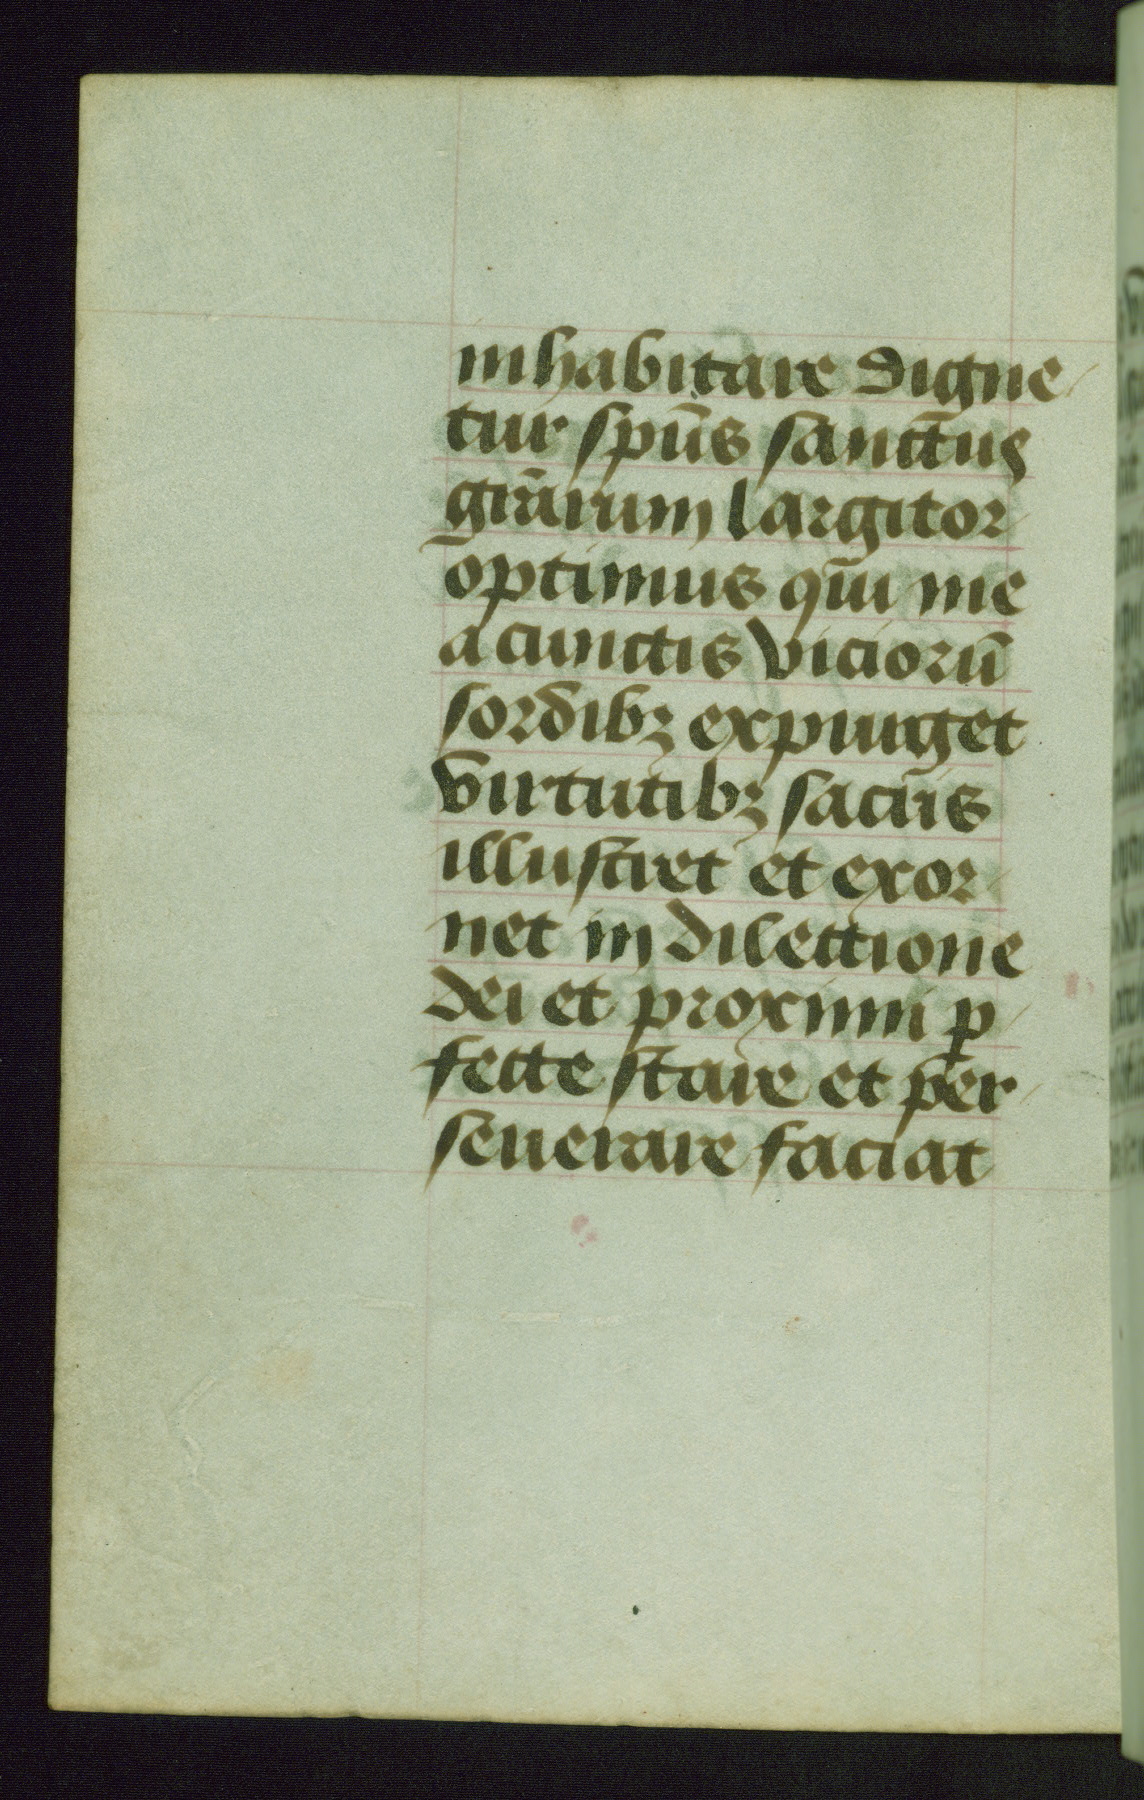 inhabitare digne
tur spūs sanctus
grārum largitor
optimus qui me
a cunctis viciorū
sordibꝫ expurget
virtutibꝫ sacris
illustret et exor
net in dilectione
dei et proximi ꝑ
fecte stare et per
seuerare faciat